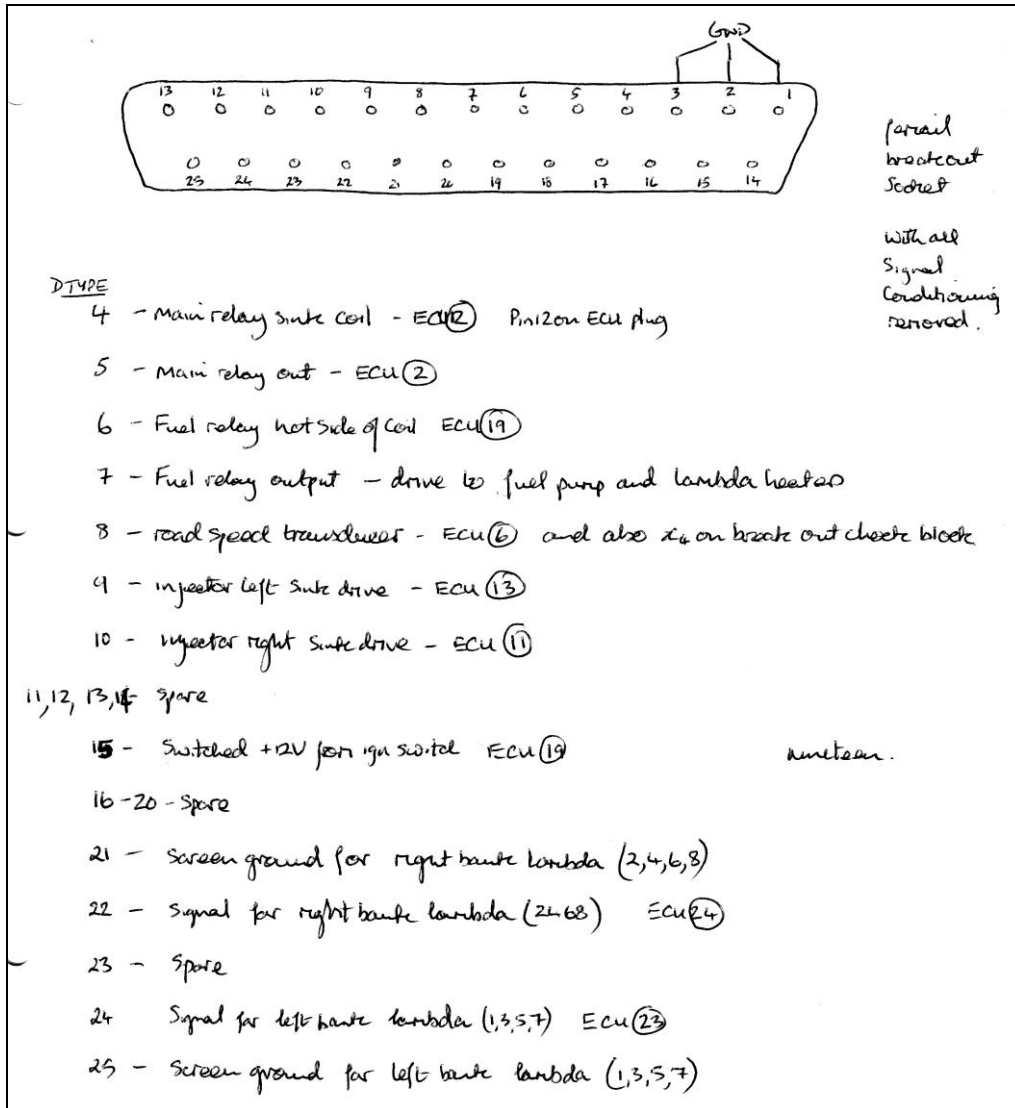 GND
13 12 11 10 9 8 7 6 5 4 3 2 1
25 24 23 22 21 20 19 18 17 16 15 14
breakout
with all
Signal
Conditioning
removed.
DTYPE
4 - Main relay sink coil - ECU 12 Pin 12 on ECU plug
5 - Main relay out - ECU 2
6 - Fuel relay hot side of coil ECU 19
7 - Fuel relay output - drive to fuel pump and lambda heaters
8 - road speed transducer - ECU 6 and also x4 on break out check block
9 - injector left sink drive - ECU 13
10 - injector right sink drive - ECU 11
11, 12, 13, 14 - Spare
15 - Switched +12V from ign switch ECU 19 nineteen.
16-20 - Spare
21 - Screen ground for right bank lambda (2,4,6,8)
22 - Signal for right bank lambda (2468) ECU 24
23 - Spare
24 Signal for left bank lambda (1,3,5,7) ECU 23
25 - Screen ground for left bank lambda (1,3,5,7)